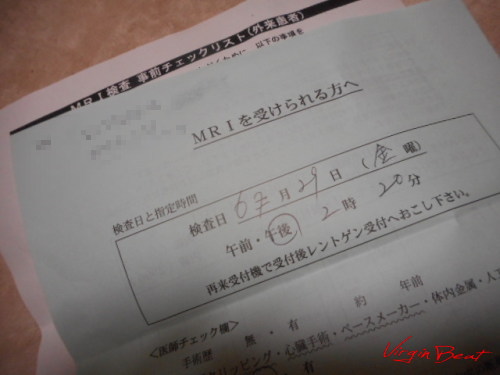 MRI検査 事前チェックリスト(外来患者)
以下の事項を
MRIを受けられる方へ
検査日と指定時間
検査日 6月29日(金曜)
午前・午後 2時20分
再来受付機で受付後レントゲン受付へおこし下さい。
<医師チェック欄>
手術歴 無・有 約 年前
リッピング・心臓手術・ペースメーカー・体内金属・人
Virgin Beat